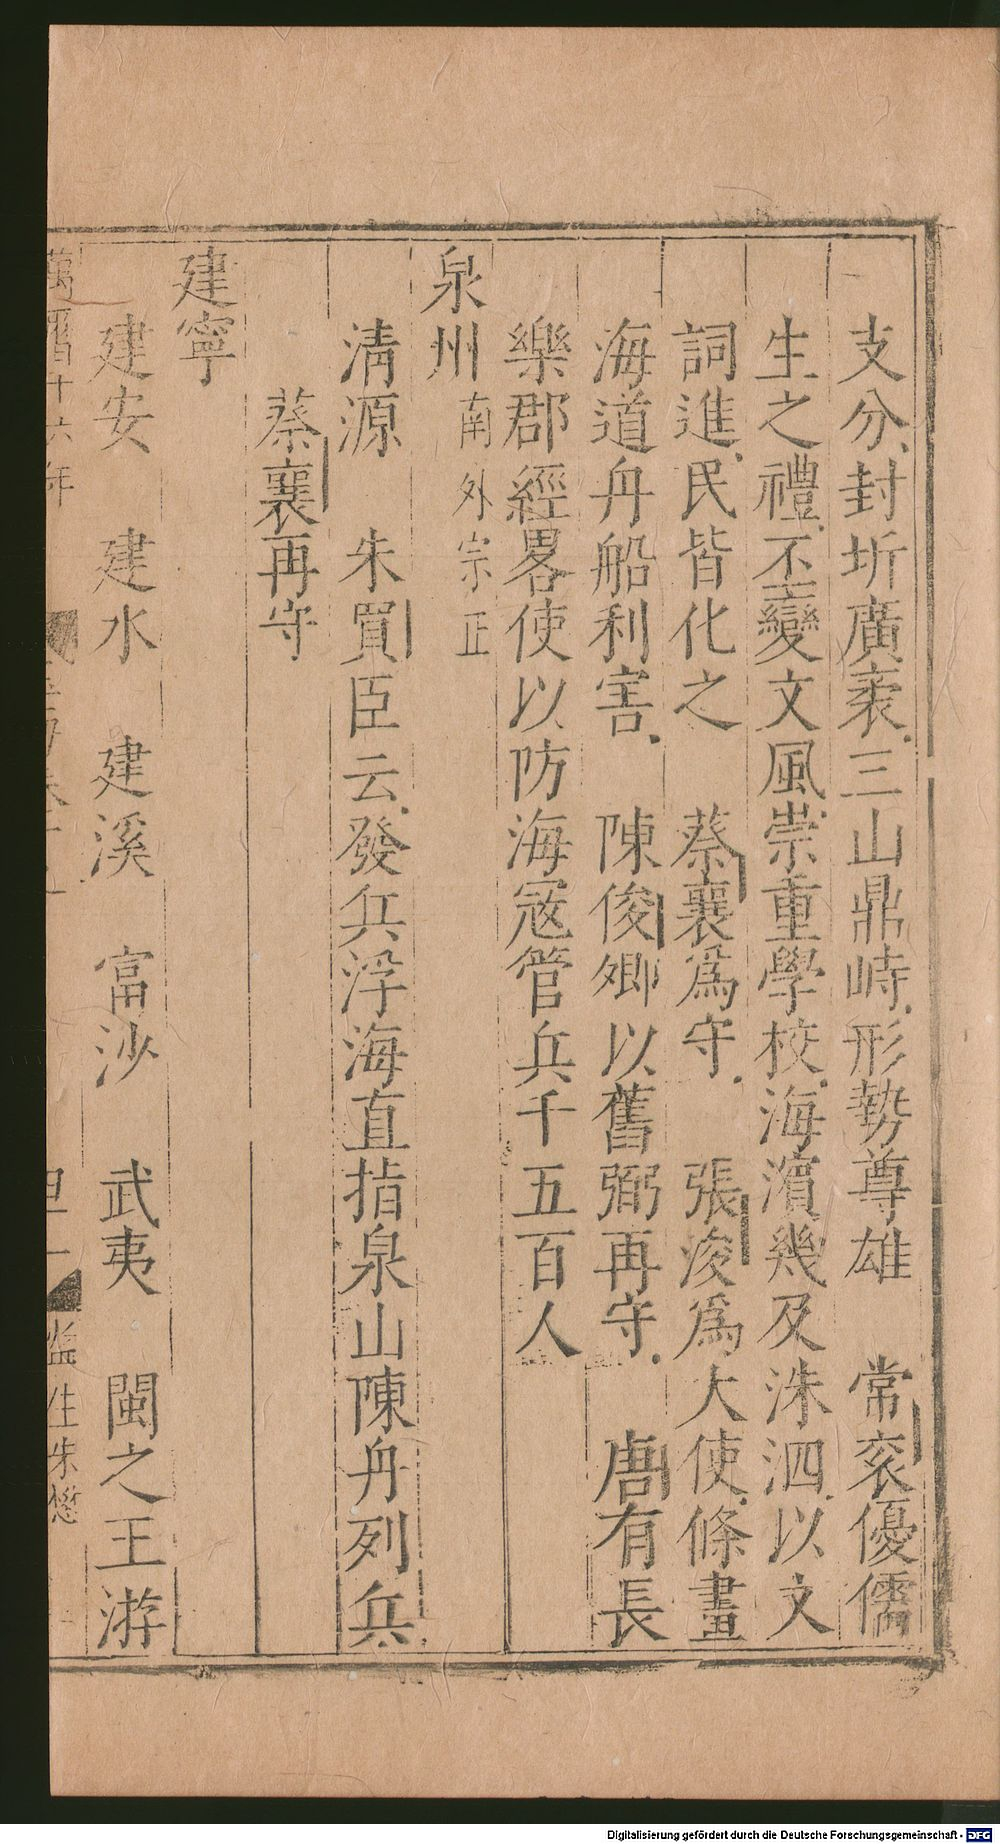 支分封圻廣袤三山鼎峙形勢尊雄　常袞優儒
生之禮不變文風崇重學校海濱幾及洙泗以文
詞進民皆化之　蔡襄爲守　張浚爲大使條畫
海道舟船利害　陳俊卿以舊弼再守　唐有長
樂郡經畧使以防海寇管兵千五百人
泉州南外宗正
清源　朱買臣云發兵浮海直指泉山陳舟列兵
蔡襄再守
建寧
建安　建水　建溪　富沙　武夷　閩之王游
萬曆十六年
監生朱
Digitalisierung gefördert durch die Deutsche Forschungsgemeinschaft - DFG